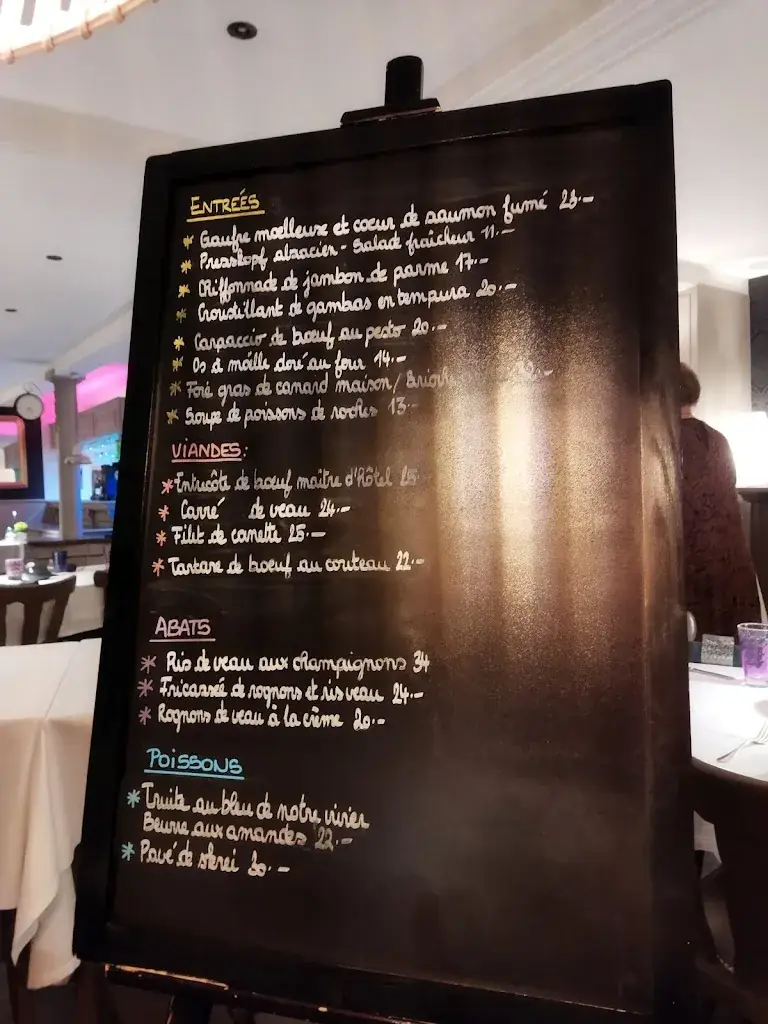 ENTREÉS
* Gaufre moelleuse et coeur de saumon fumé 23.-
* Presskopf alsacien - Salade fraîcheur 11.-
* Chiffonnade de jambon de parme 17.-
* Croustillant de gambas en tempura 20.-
* Carpaccio de boeuf au pesto 20.-
* Os à moëlle doré au four 14.-
* Foie gras de canard maison/ Brioche
* Soupe de poissons de roches 13.-
VIANDES:
* Entrecôte de boeuf maître d'Hôtel 25
* Carré de veau 24.-
* Filet de canette 25.-
* Tartare de boeuf au couteau 22.-
ABATS
* Ris de veau aux champignons 34
* Fricassée de rognons et ris veau 24.-
* Rognons de veau à la crème 20.-
POISSONS
* Truite au bleu de notre vivier
Beurre aux amandes 22.-
* Pavé de skrei 30.-